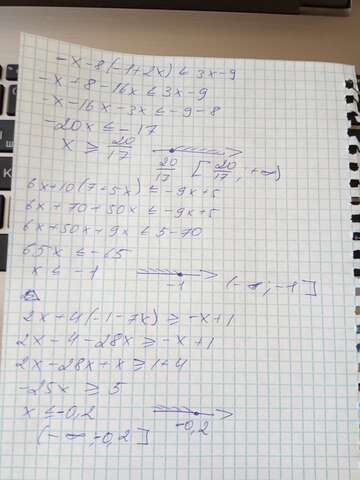 -x-8(-1+2x) ≤ 3x-9
-x+8-16x ≤ 3x-9
-x-16x-3x ≤ -9-8
-20x ≤ -17
x ≥ 20/17
20/17 [20/17, +∞)
6x+10(7+5x) ≤ -9x+5
6x+70+50x ≤ -9x+5
6x+50x+9x ≤ 5-70
65x ≤ -65
x ≤ -1
-1 (-∞, -1]
2x+4(-1-7x) ≥ -x+1
2x-4-28x ≥ -x+1
2x-28x+x ≥ 1+4
-25x ≥ 5
x ≤ -0,2
-0,2
(-∞, -0,2]